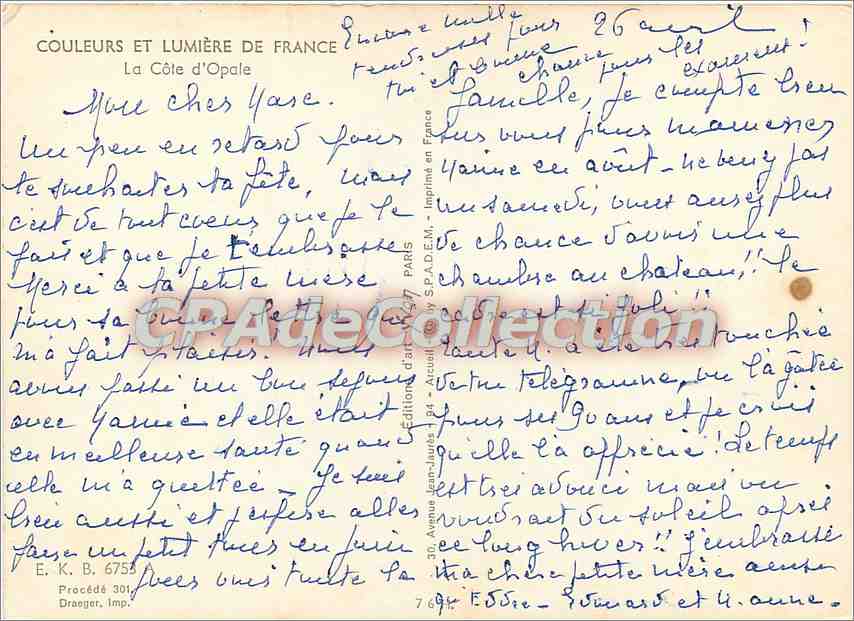 COULEURS ET LUMIÈRE DE FRANCE
La Côte d'Opale
26 avril
Mon cher Marc.
Un peu en retard pour
te souhaiter ta fête, mais
c'est de tout coeur que je le
fait et que je t'embrasse
Merci à ta petite mère
pour sa bonne lettre qui
m'a fait plaisir! Nous
avons passé un bon séjour
avec Mamie et elle était
en meilleure santé quand
elle m'a quittée - Je suis
bien aussi et j'espère aller
faire un petit tour en juin
avec toute la
famille, je compte bien
sur vous pour m'amener
Mamie en août - Ne venez pas
un samedi, vous aurez plus
de chance d'avoir une
chambre au chateau,!! le
cadre est si joli!!
Tante M. a été très touchée
de ton télégramme, on l'a gâtée
pour ses 90 ans et je crois
qu'elle l'a apprécié! Le temps
est très adouci mais on
voudrait du soleil après
ce long hiver!! J'embrasse
ma chère petite mère ainsi
qu'Eddie - Edouard et M. anne -
Encore mille
tendresses pour
toi et bonne
chance pour les
examens!
Éditions d'art PARIS
30, Avenue Jean-Jaurès - 94 - Arcueil by S.P.A.D.E.M. - Imprimé en France
CPAdeCollection
E. K. B. 6753 A
Procédé 301
Draeger, Imp.